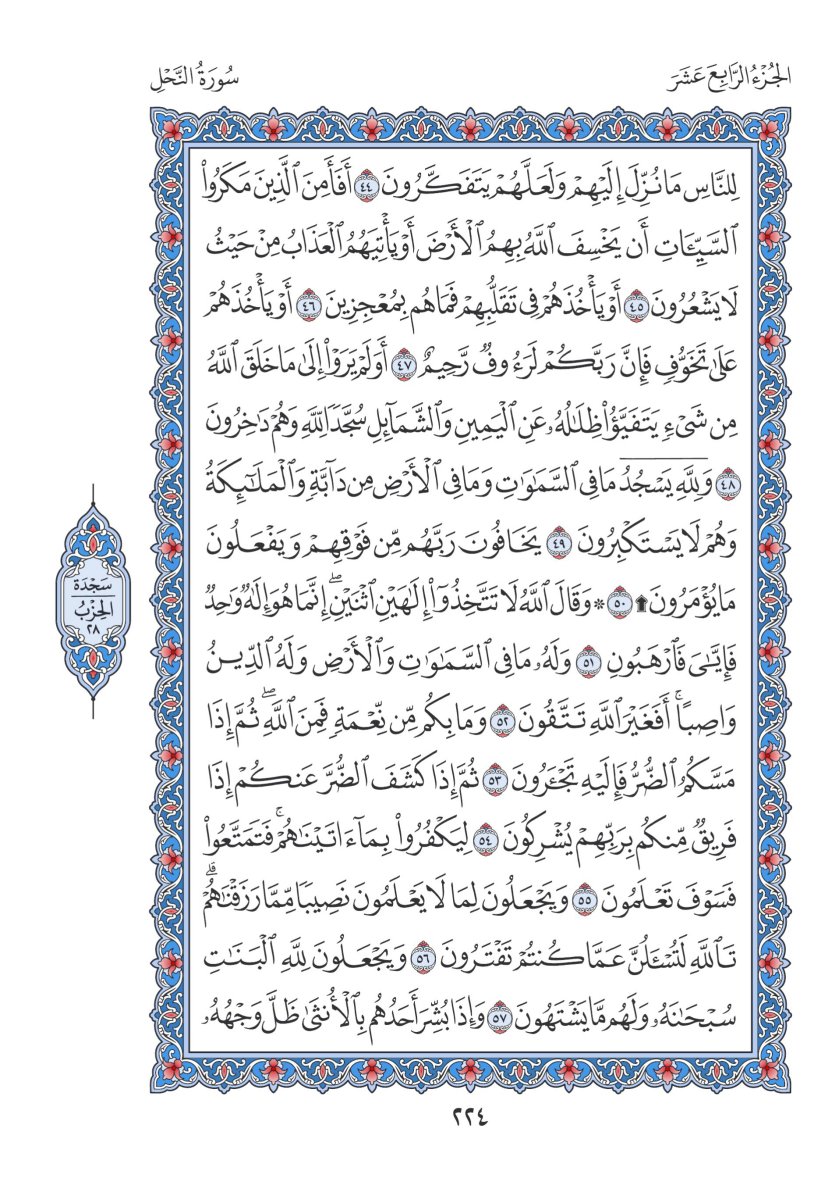 الجُزْءُ الرَّابِعَ عَشَرَ
سُورَةُ النَّحْلِ
لِلنَّاسِ مَا نُزِّلَ إِلَيْهِمْ وَلَعَلَّهُمْ يَتَفَكَّرُونَ ٤٤ أَفَأَمِنَ ٱلَّذِينَ مَكَرُوا۟
ٱلسَّيِّـَٔاتِ أَن يَخْسِفَ ٱللَّهُ بِهِمُ ٱلْأَرْضَ أَوْ يَأْتِيَهُمُ ٱلْعَذَابُ مِنْ حَيْثُ
لَا يَشْعُرُونَ ٤٥ أَوْ يَأْخُذَهُمْ فِى تَقَلُّبِهِمْ فَمَا هُم بِمُعْجِزِينَ ٤٦ أَوْ يَأْخُذَهُمْ
عَلَىٰ تَخَوُّفٍ فَإِنَّ رَبَّكُمْ لَرَءُوفٌ رَّحِيمٌ ٤٧ أَوَلَمْ يَرَوْا۟ إِلَىٰ مَا خَلَقَ ٱللَّهُ
مِن شَىْءٍ يَتَفَيَّؤُا۟ ظِلَـٰلُهُۥ عَنِ ٱلْيَمِينِ وَٱلشَّمَآئِلِ سُجَّدًا لِّلَّهِ وَهُمْ دَٰخِرُونَ
٤٨ وَلِلَّهِ يَسْجُدُ مَا فِى ٱلسَّمَـٰوَٰتِ وَمَا فِى ٱلْأَرْضِ مِن دَآبَّةٍ وَٱلْمَلَـٰٓئِكَةُ
وَهُمْ لَا يَسْتَكْبِرُونَ ٤٩ يَخَافُونَ رَبَّهُم مِّن فَوْقِهِمْ وَيَفْعَلُونَ
مَا يُؤْمَرُونَ ۩ ٥٠ ۞ وَقَالَ ٱللَّهُ لَا تَتَّخِذُوٓا۟ إِلَـٰهَيْنِ ٱثْنَيْنِ ۖ إِنَّمَا هُوَ إِلَـٰهٌ وَٰحِدٌ
فَإِيَّـٰىَ فَٱرْهَبُونِ ٥١ وَلَهُۥ مَا فِى ٱلسَّمَـٰوَٰتِ وَٱلْأَرْضِ وَلَهُ ٱلدِّينُ
وَاصِبًا ۚ أَفَغَيْرَ ٱللَّهِ تَتَّقُونَ ٥٢ وَمَا بِكُم مِّن نِّعْمَةٍ فَمِنَ ٱللَّهِ ۖ ثُمَّ إِذَا
مَسَّكُمُ ٱلضُّرُّ فَإِلَيْهِ تَجْـَٔرُونَ ٥٣ ثُمَّ إِذَا كَشَفَ ٱلضُّرَّ عَنكُمْ إِذَا
فَرِيقٌ مِّنكُم بِرَبِّهِمْ يُشْرِكُونَ ٥٤ لِيَكْفُرُوا۟ بِمَآ ءَاتَيْنَـٰهُمْ ۚ فَتَمَتَّعُوا۟
فَسَوْفَ تَعْلَمُونَ ٥٥ وَيَجْعَلُونَ لِمَا لَا يَعْلَمُونَ نَصِيبًا مِّمَّا رَزَقْنَـٰهُمْ ۗ
تَٱللَّهِ لَتُسْـَٔلُنَّ عَمَّا كُنتُمْ تَفْتَرُونَ ٥٦ وَيَجْعَلُونَ لِلَّهِ ٱلْبَنَـٰتِ
سُبْحَـٰنَهُۥ وَلَهُم مَّا يَشْتَهُونَ ٥٧ وَإِذَا بُشِّرَ أَحَدُهُم بِٱلْأُنثَىٰ ظَلَّ وَجْهُهُۥ
سَجْدَة
الحِزْبُ
٢٨
٢٢٤